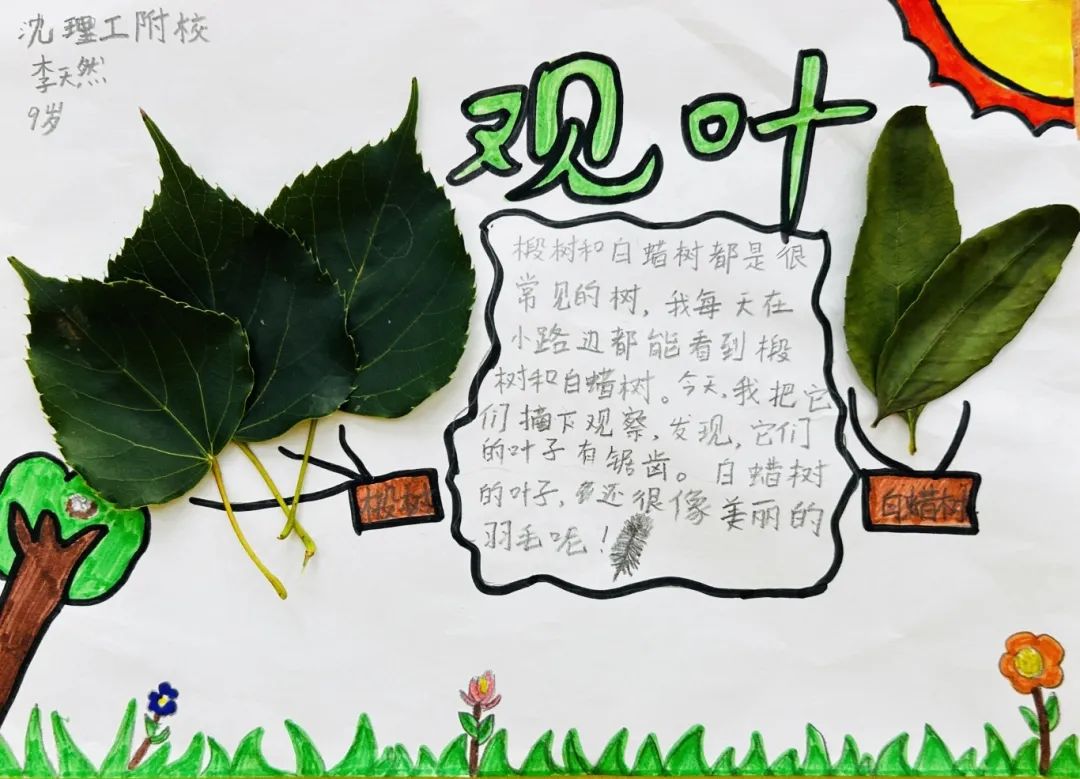 沈理工附校
李天然
9岁
观叶
椴树和白蜡树都是很
常见的树，我每天在
小路边都能看到椴
树和白蜡树。今天，我把它
们摘下观察，发现，它们
的叶子有锯齿。白蜡树
的叶子，还很像美丽的
羽毛呢！
椴树
白蜡树